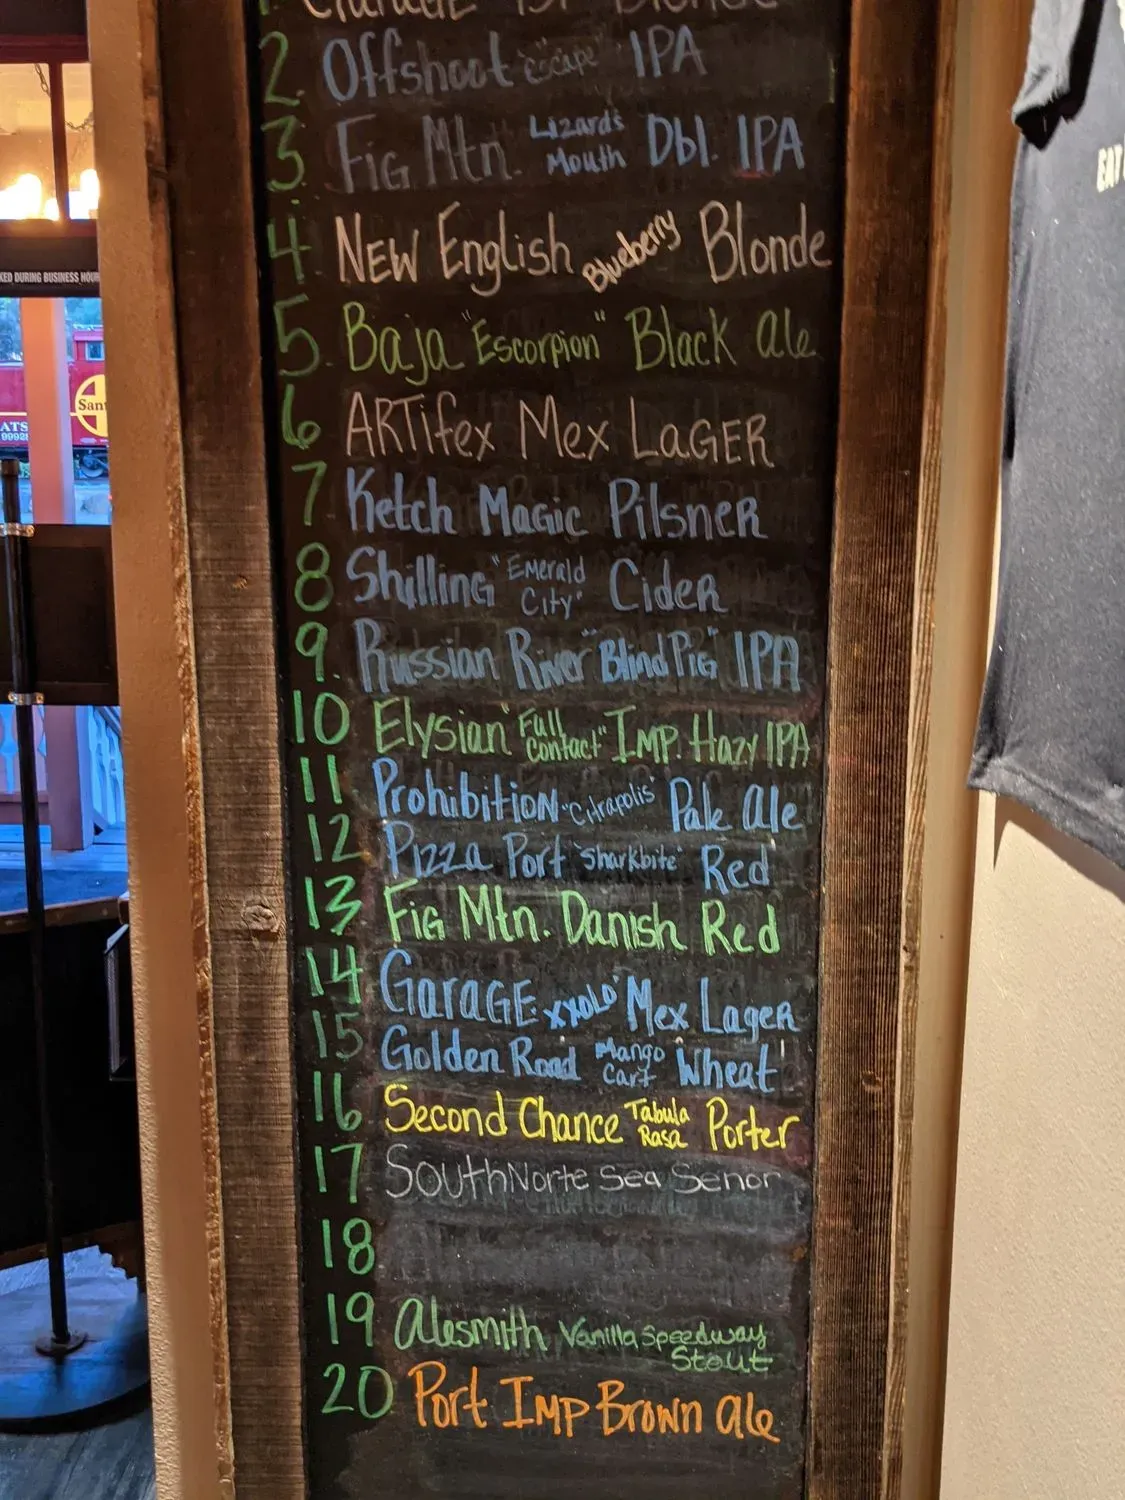 2. Offshoot "escape" IPA
3. Fig Mtn. Lizard's Mouth Dbl. IPA
4. New English Blueberry Blonde
5. Baja "Escorpion" Black Ale
6. ARTifex Mex LAGER
7. Ketch Magic Pilsner
8. Shilling "Emerald City" Cider
9. Russian River "Blind Pig" IPA
10 Elysian "Full Contact" Imp. Hazy IPA
11 Prohibition "Citrapolis" Pale Ale
12 Pizza Port "Sharkbite" Red
13 Fig Mtn. Danish Red
14 GaraGE "XXOLO" Mex Lager
15 Golden Road Mango Cart Wheat
16 Second Chance Tabula Rasa Porter
17 SouthNorte Sea Senor
18
19 Alesmith Vanilla Speedway Stout
20 Port Imp Brown Ale
KED DURING BUSINESS HOUR
San
ATS
9992
EAT